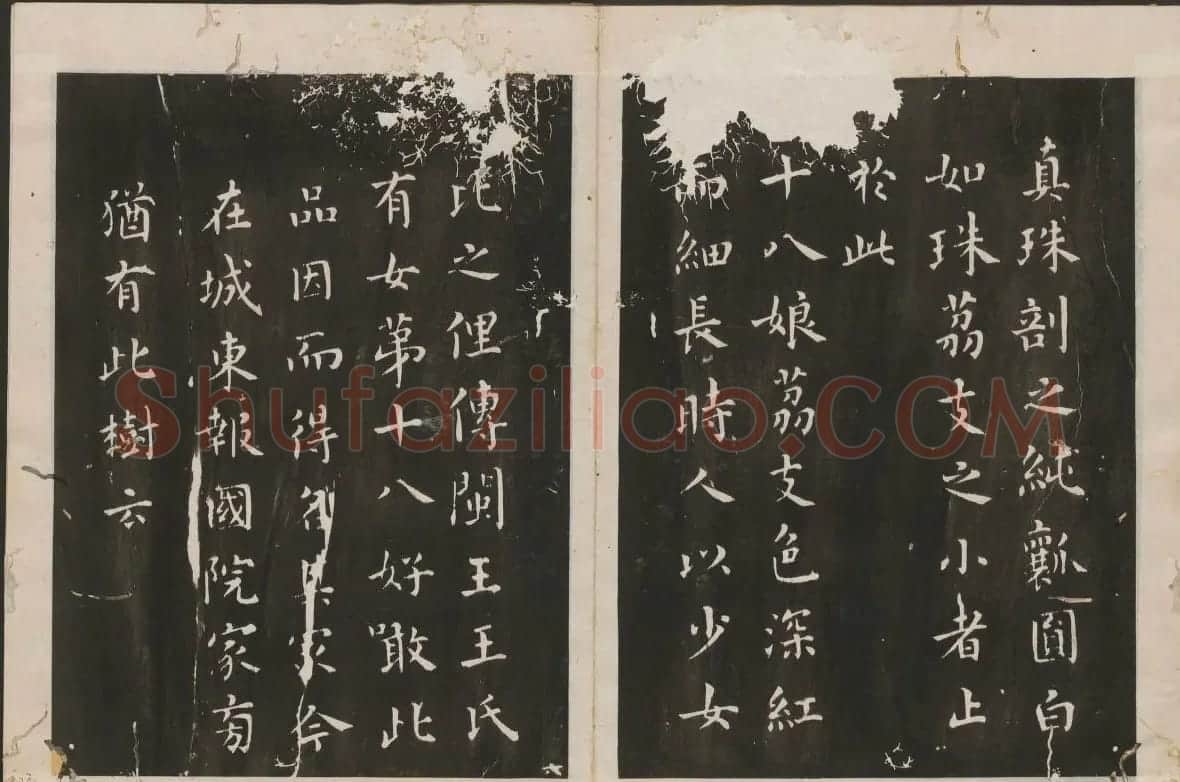 真珠剖之純瓤圓白
如珠荔支之小者止
於此
十八娘荔支色深紅
而細長時人以少女
比之俚傳閩王王氏
有女第十八好噉此
品因而得名其家今
在城東報國院家旁
猶有此樹云
Shufaziliao.COM